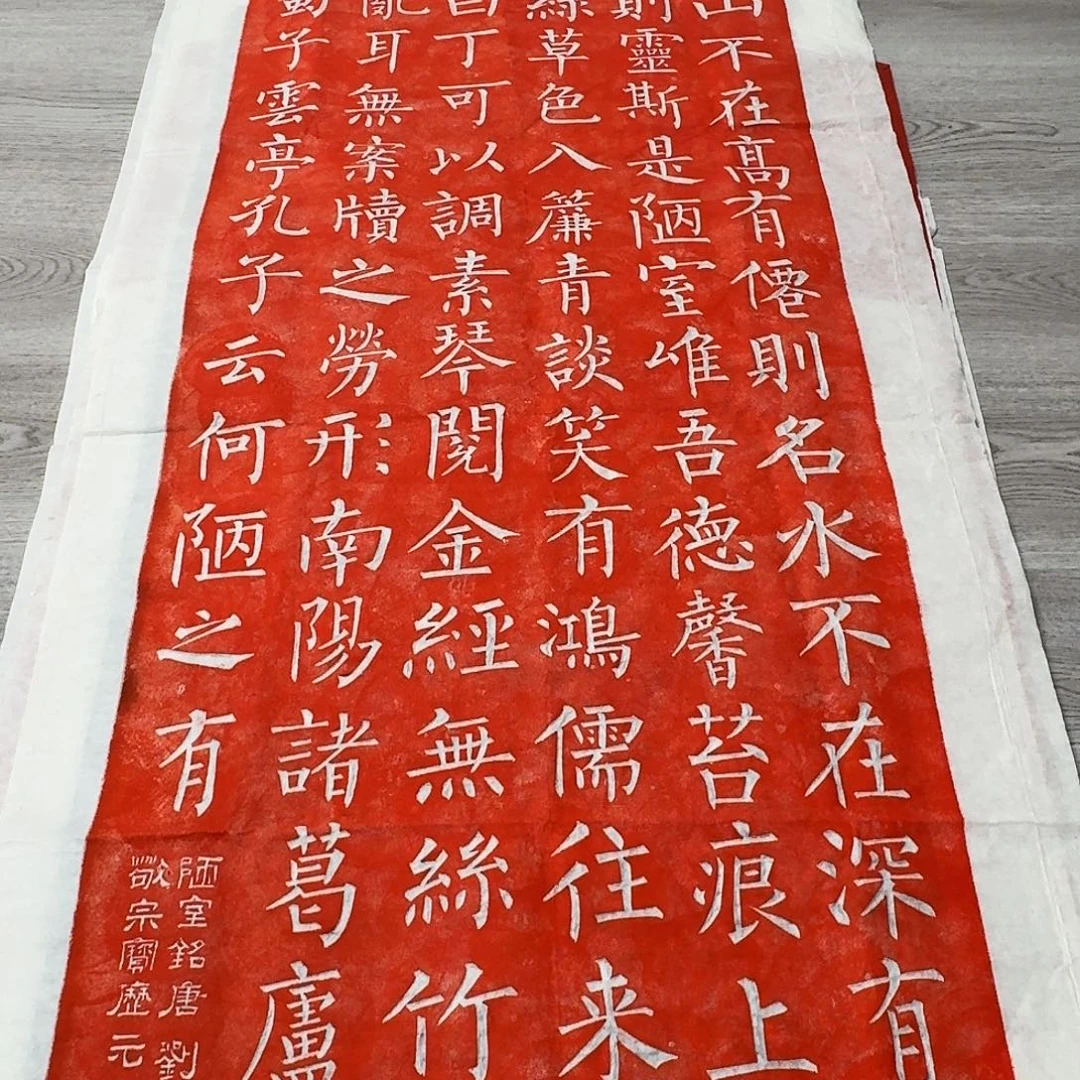 山不在髙有僊則名水不在深有
則靈斯是陋室唯吾德馨苔痕上
綠草色入簾青談笑有鴻儒往来
白丁可以調素琴閱金經無絲竹
亂耳無案牘之勞形南陽諸葛廬
蜀子雲亭孔子云何陋之有
陋室銘唐劉
敬宗寶歷元